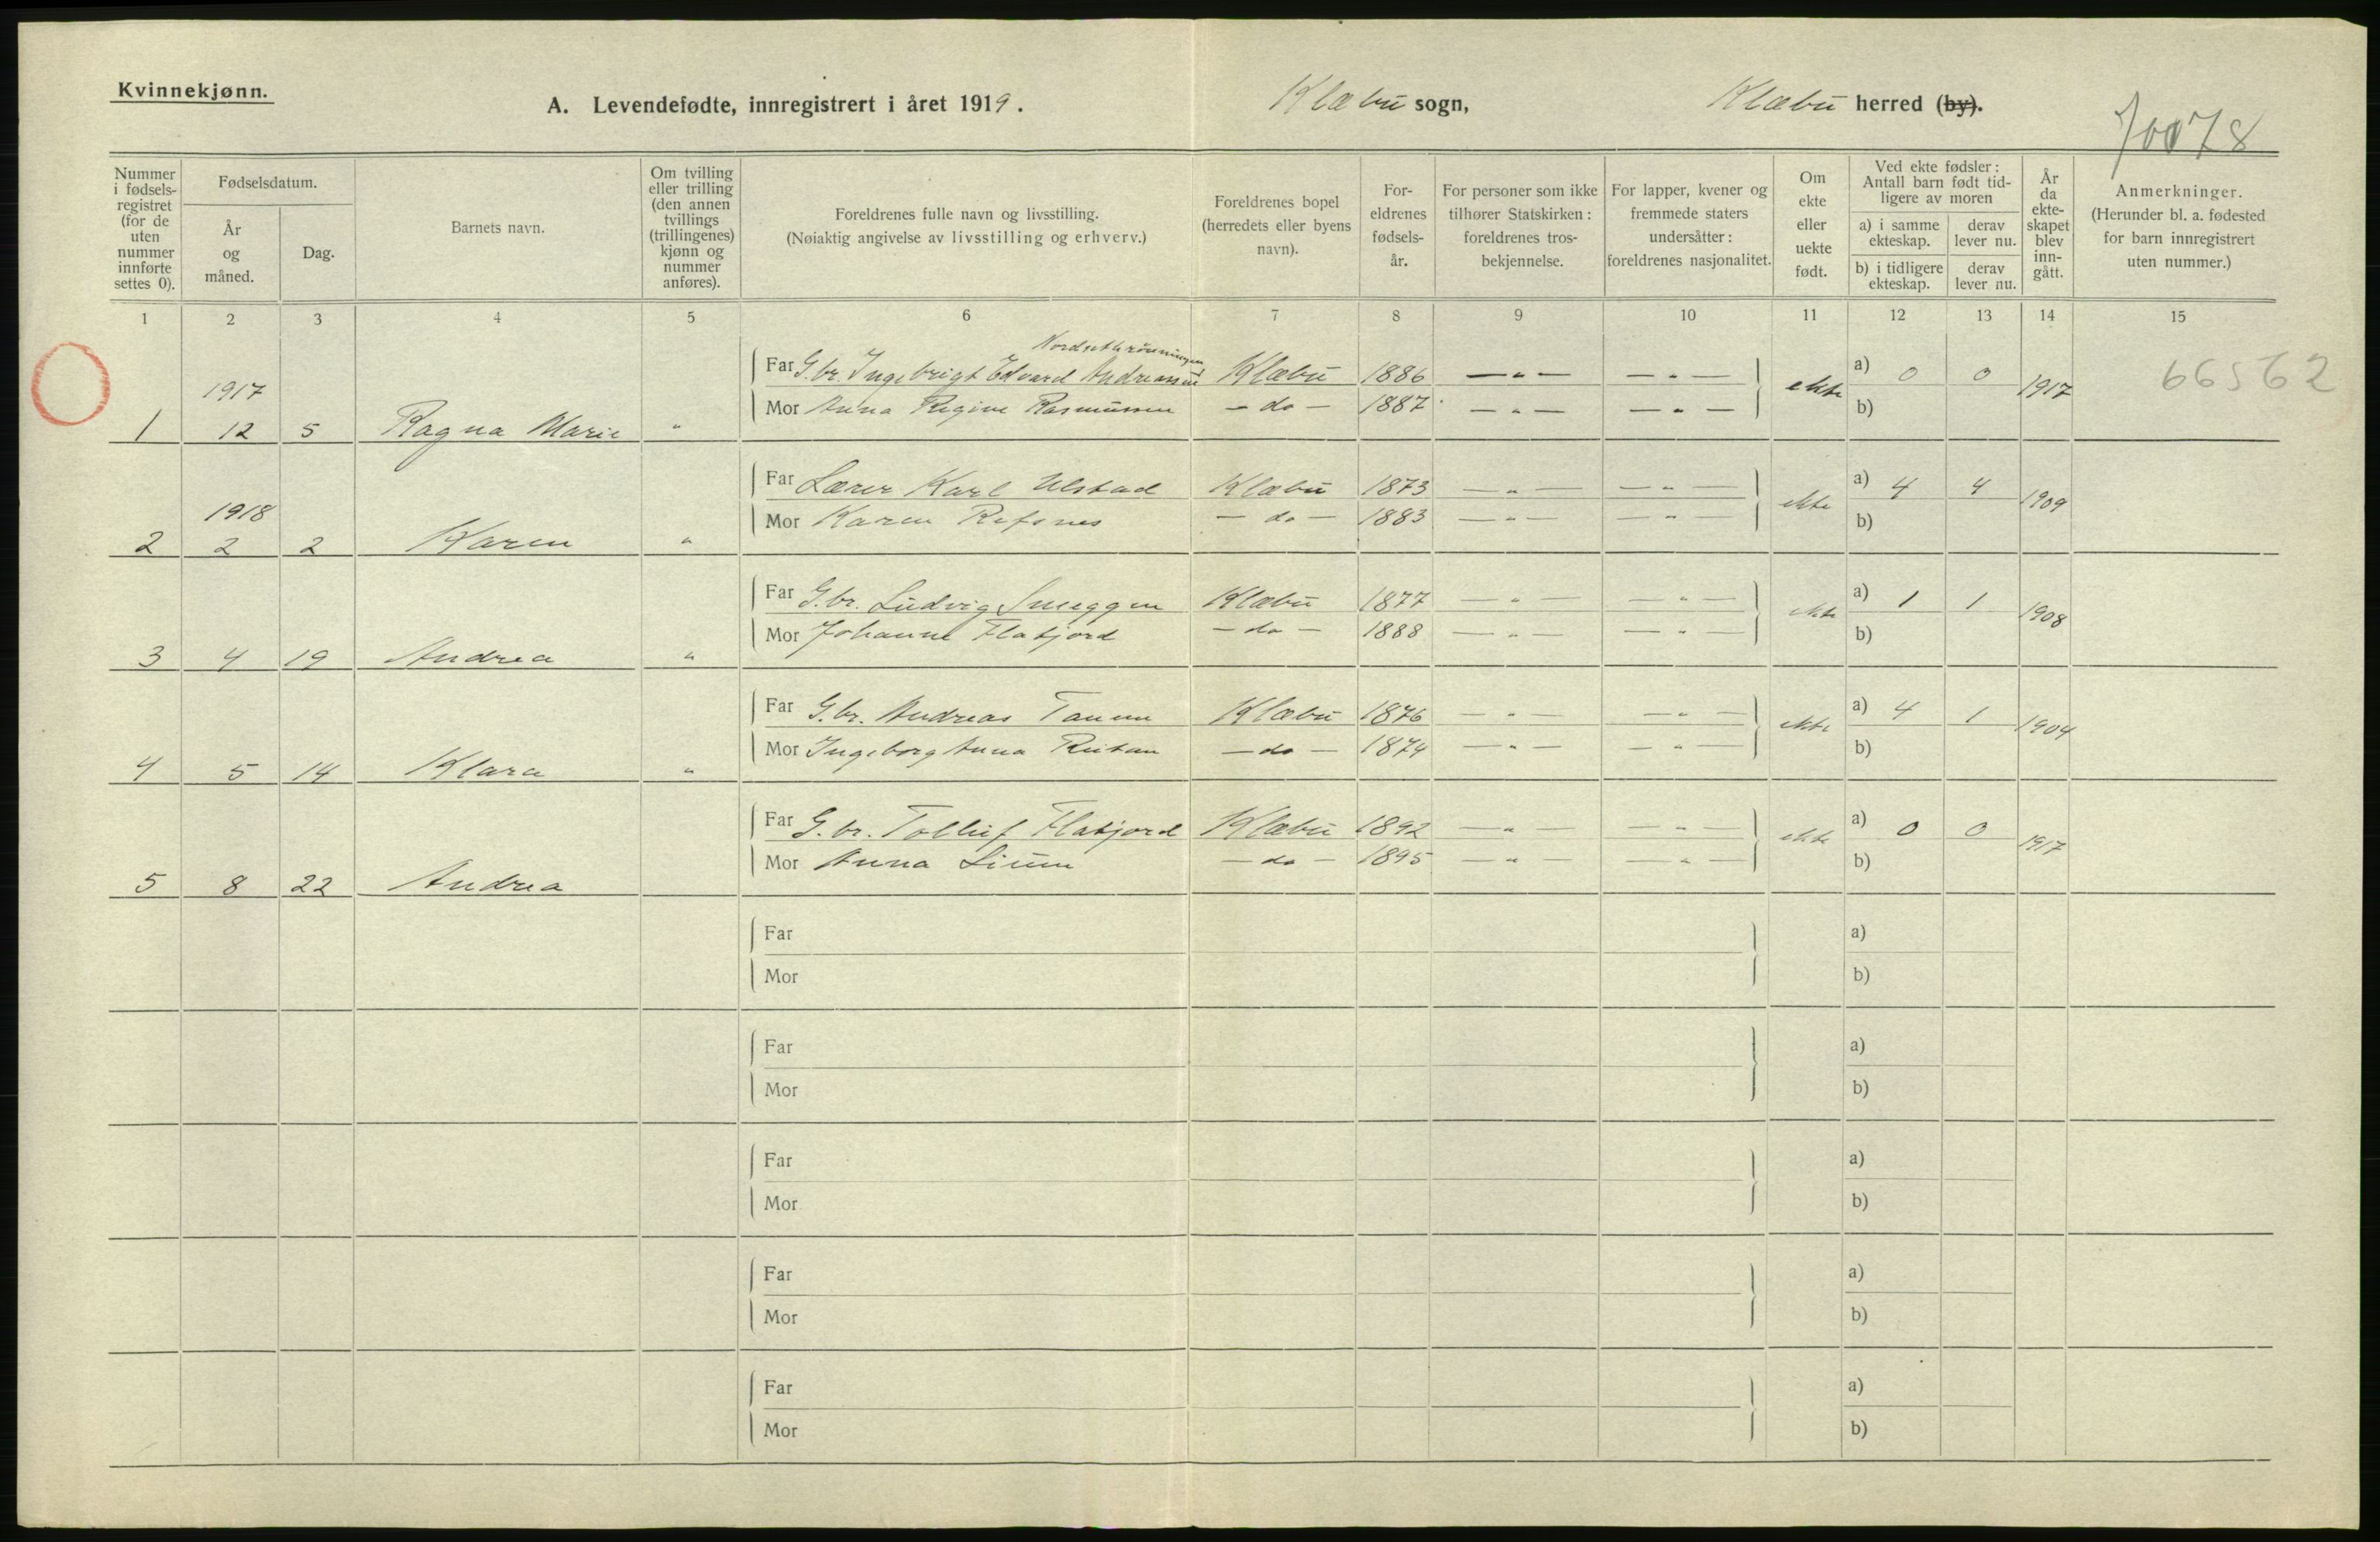 Kvinnekjønn.
A. Levendefødte, innregistrert i året 1919.
Klæbu sogn,
Klæbu herred (by).
Nummer i fødsels-registret (for de uten nummer innførte settes 0).
Fødselsdatum.
År og måned.
Dag.
Barnets navn.
Om tvilling eller trilling (den annen tvillings (trillingenes) kjønn og nummer anføres).
Foreldrenes fulle navn og livsstilling.
(Nøiaktig angivelse av livsstilling og erhverv.)
Foreldrenes bopel (herredets eller byens navn).
For-eldrenes fødsels-år.
For personer som ikke tilhører Statskirken: foreldrenes tros-bekjennelse.
For lapper, kvener og fremmede staters undersåtter: foreldrenes nasjonalitet.
Om ekte eller uekte født.
Ved ekte fødsler: Antall barn født tid-ligere av moren
a) i samme ekteskap.
derav lever nu.
b) i tidligere ekteskap.
derav lever nu.
År da ekte-skapet blev inn-gått.
Anmerkninger.
(Herunder bl. a. fødested for barn innregistrert uten nummer.)
1 2 3 4 5 6 7 8 9 10 11 12 13 14 15
Far G.br. Ingebrigt Edvard Andreassen Klæbu 1886 — " — — " — ekte a) 0 0 1917 66562
1917
Mor Anna Regine Rasmussen — do — 1887 — " — — " — b)
1 12 5 Ragna Marie "
Far Lærer Karl Ulstad Klæbu 1873 — " — — " — ekte a) 4 4 1909
1918
Mor Karen Refsnes — do — 1883 — " — — " — b)
2 2 2 Karen "
Far G.br. Ludvig Smeggen Klæbu 1877 — " — — " — ekte a) 1 1 1908
Mor Johanne Flatjord — do — 1888 — " — — " — b)
3 4 19 Andrea "
Far G.br. Andreas Tanem Klæbu 1876 — " — — " — ekte a) 4 1 1904
Mor Ingeborg Anna — do — 1874 — " — — " — b)
4 5 14 Klara "
Far G.br. Flatjord Klæbu 1892 — " — — " — ekte a) 0 0 1917
Mor Anna Lium — do — 1895 — " — " — b)
5 8 22 Andrea
Far a)
Mor b)
Far a)
Mor b)
Far a)
Mor b)
Far a)
Mor b)
Far a)
Mor b)